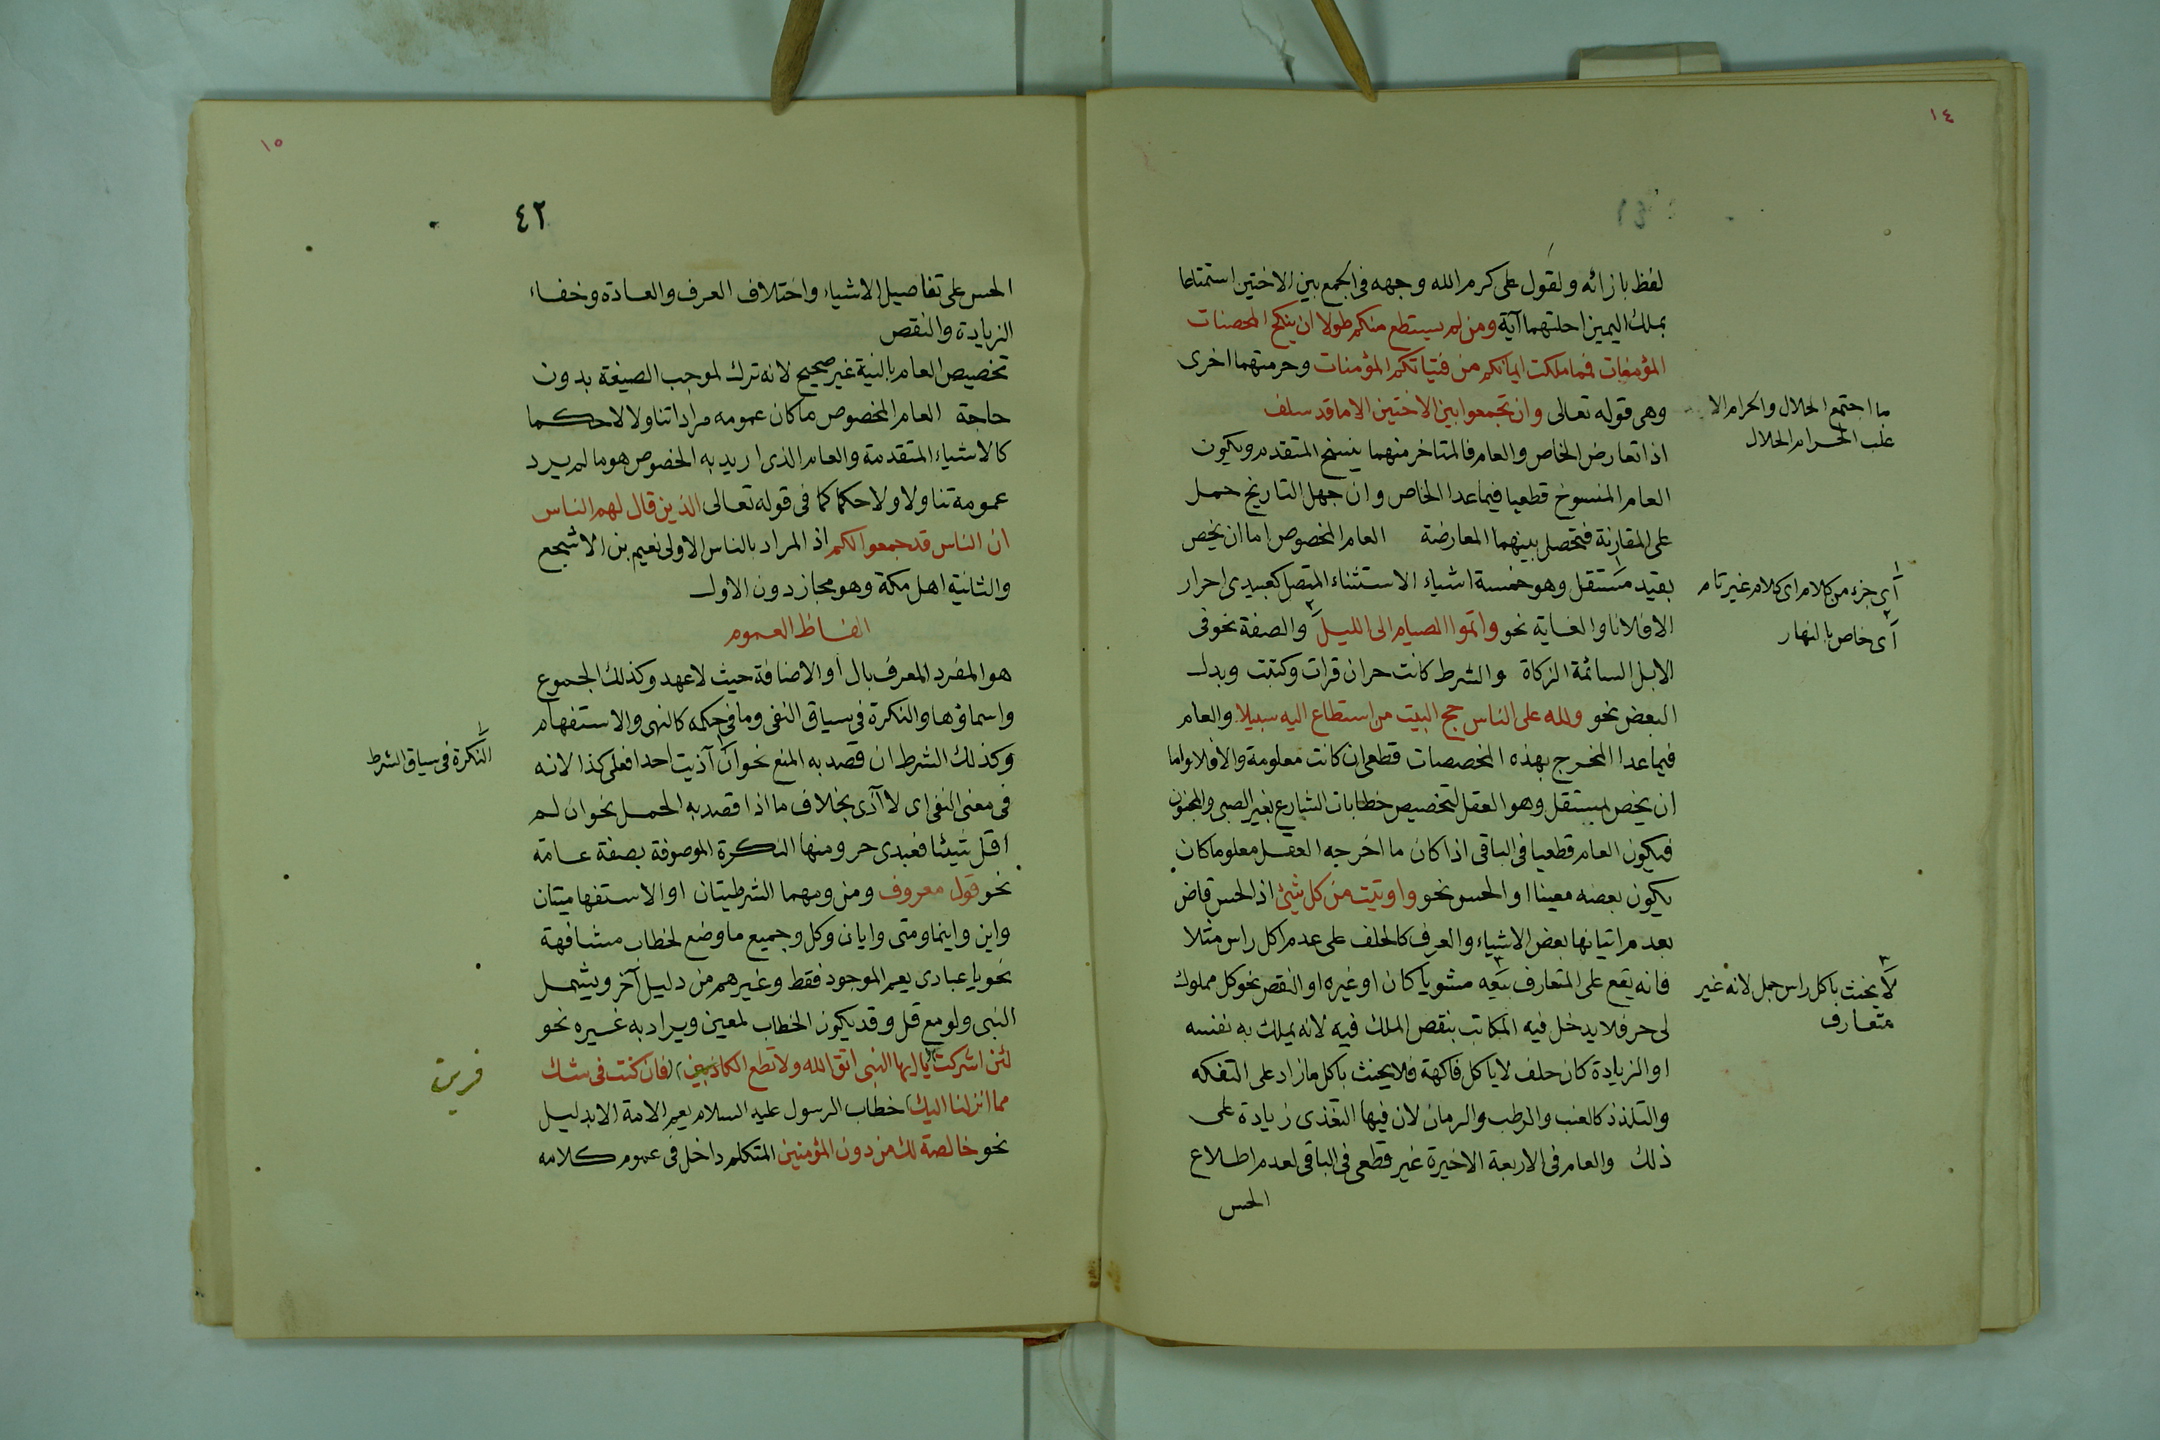 ١٤
٤١
لفظ بازائه ولقول على كرم الله وجهه فى الجمع بين الاختين استمتاعا
بملك اليمين احلتهما آية ومن لم يستطع منكم طولا ان ينكح المحصنات
المؤمنات فمما ملكت ايمانكم من فتياتكم المؤمنات وحرمتهما اخرى
وهى قوله تعالى وان تجمعوا بين الاختين الا ما قد سلف
اذا تعارض الخاص والعام فالمتاخر منهما ينسخ المتقدم ويكون
العام المنسوخ قطعيا فيما عدا الخاص وان جهل التاريخ حمل
على المقارنة فتحصل بينهما المعارضة العام المخصوص اما ان يخص
بقيد مستقل وهو خمسة اشياء الاستثناء المتصل كعبيدى احرار
الا فلانا والغاية نحو واتموا الصيام الى الليل والصفة نحو فى
الابل السائمة الزكاة والشرط كانت حر ان قرات وكتبت وبدل
البعض نحو ولله على الناس حج البيت من استطاع اليه سبيلا والعام
فيما عدا المخرج بهذه المخصصات قطعى ان كانت معلومة والا فلا واما
ان يخص بمستقل وهو العقل لتخصيص خطابات الشارع بغير الصبى والمجنون
فيكون العام قطعيا فى الباقى اذا كان ما اخرجه العقل معلوما كان
يكون بعضه معينا او الحس نحو واوتيت من كل شيئ اذ الحس قاض
بعدم اتيانها بعض الاشياء والعرف كالحلف على عدم اكل راس مثلا
فانه يقع على المتعارف بيعه مشويا كان او غيره او النقص نحو كل مملوك
لى حر فلا يدخل فيه المكاتب بنقص الملك فيه لانه يملك به نفسه
او الزيادة كان حلف لا ياكل فاكهة فلا يحنث باكل ما زاد على التفكه
والتلذذ كالعنب والرطب والرمان لان فيها التغذى زيادة على
ذلك والعام فى الاربعة الاخيرة غير قطعى فى الباقى لعدم اطلاع
الحس
ما اجتمع الحلال والحرام الا
غلب الحرام الحلال
١
اى جزء من كلام اى كلام غير تام
٢
اى خاص بالنهار
٣
لا يحنث باكل راس جمل لانه غير
متعارف
١٥
٤٢
الحس على تفاصيل الاشياء واختلاف العرف والعادة وخفاء
الزيادة والنقص
تخصيص العام بالنية غير صحيح لانه ترك لموجب الصيغة بدون
حاجة العام المخصوص ما كان عمومه مرادا تناولا لا حكما
كالاشياء المتقدمة والعام الذى اريد به الخصوص هو ما لم يرد
عمومه تناولا ولا حكما كما فى قوله تعالى الذين قال لهم الناس
ان الناس قد جمعوا لكم اذ المراد بالناس الاولى نعيم بن الاشجع
والثانية اهل مكة وهو مجاز دون الاول
الفاظ العموم
هو المفرد المعرف بال او الاضافة حيث لا عهد وكذلك الجموع
واسماؤها والنكرة فى سياق النفى وما فى حكمه كالنهى والاستفهام
وكذلك الشرط ان قصد به المنع نحو ان آذيت احدا فعلى كذا لانه
فى معنى النفى اى لا آذى بخلاف ما اذا قصد به الحمل نحو ان لم
اقل شيئا فعبدى حر ومنها النكرة الموصوفة بصفة عامة
نحو قول معروف ومن ومهما الشرطيتان او الاستفهاميتان
واين واينما ومتى وايان وكل وجميع ما وضع لخطاب مشافهة
نحو يا عبادى يعم الموجود فقط وغيرهم من دليل آخر ويشمل
النبى ولو مع قل وقد يكون الخطاب لمعين ويراد به غيره نحو
لئن اشركت (يا ايها النبى اتق الله ولا تطع الكافرين) (فان كنت فى شك
مما انزلنا اليك) خطاب الرسول عليه السلام يعم الامة الا بدليل
نحو خالصة لك من دون المؤمنين المتكلم داخل فى عموم كلامه
١
النكرة فى سياق الشرط